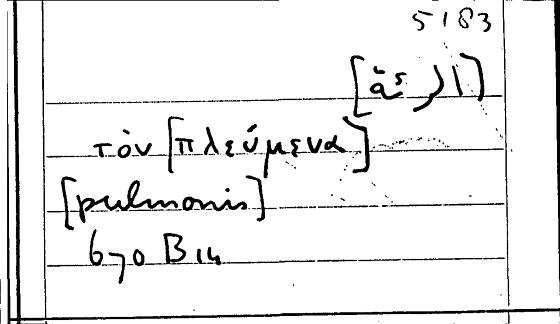 5183
τὸν [πλεύμενα]
[pulmonis]
670 B 14